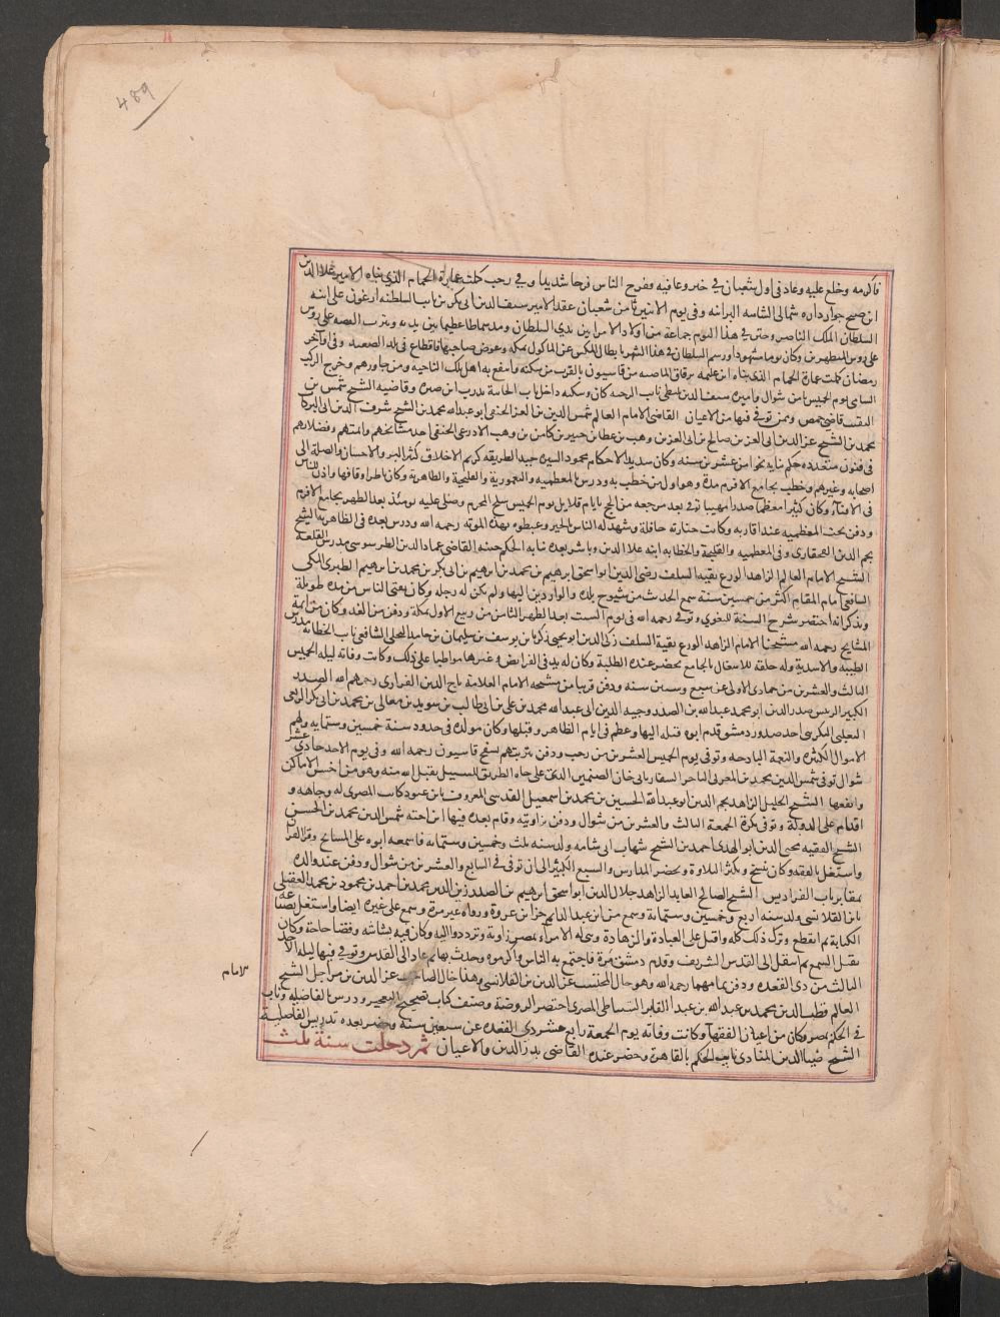 489
فاكرمه وخلع عليه وعاد في اول شعبان في خير وعافيه ففرح الناس فرحا شديدا وفي رجب كملت عمارة الحمام الذي بناه الامير علاالدين
ابن صبح جوار داره شمالى الشاميه البرانيه وفي يوم الاثنين ثامن شعبان عقد الامير سيف الدين ابي بكر بن نايب السلطنه ارغون على ابنة
السلطان الملك الناصر وختن في هذا اليوم جماعة من اولاد الامرا بين يدي السلطان ومد سماطا عظيما بين يديه ونثرت الفضه على روس
المطهرين وكان يوما مشهودا ورسم السلطان في هذا الشهر بابطال المكس عن الماكول بمكه وعوض صاحبها باقطاع في بلد الصعيد وفي اواخر
رمضان كملت عمارة الحمام الذي بناه ابن عليمه بزقاق الماصيه من قاسيون بالقرب من سكنه وانتفع به اهل تلك الناحيه ومن جاورهم وخرج الركب
الشامي يوم الخميس ثامن شوال واميره سيف الدين بلطي نايب الرحبه كان وسكنه داخل باب الجابيه بدرب ابن صبره وقاضيه الشيخ شمس بن
النقيب قاضي حمص وممن توفي فيها من الاعيان القاضي الامام العالم شمس الدين بن العز الحنفي ابو عبدالله محمد بن الشيخ شرف الدين ابي البركات
محمد بن الشيخ عز الدين ابي العز بن صالح بن ابي العز بن وهيب بن عطا بن جبير بن كابن بن وهيب الاذرعي الحنفي احد مشايخهم وايمتهم وفضلايهم
في فنون متعدده حكم نيابه نحوا من عشرين سنه وكان سديد الاحكام محمود السيره جيد الطريقه كريم الاخلاق كثير البر والاحسان والصله الى
اصحابه وغيرهم وخطب بجامع الافرم مدة وهو اول من خطب به ودرس بالمعظميه واليغموريه والقليجيه والظاهريه وكان ناظر اوقافها واذن للناس
في الافتاء وكان كبيرا معظما مهيبا توفي بعد مرجعه من الحج بايام قلايل يوم الخميس سلخ المحرم وصلي عليه يوميذ بعد الظهر بجامع الافرم
ودفن بتحت المعظميه عند اقاربه وكانت جنازته حافلة وشهد له الناس بالخير وغبطوه بهذه الموته رحمه الله ودرس بعده في الظاهريه الشيخ
نجم الدين القحفازي وفي المعظميه والقليجيه والخطابه ابنه علا الدين وباشر بعده نيابه الحكم عنه القاضي عماد الدين الطرسوسي مدرس القلعه
الشيخ الامام العالم الزاهد الورع بقيه السلف رضي الدين ابو اسحق ابرهيم بن محمد بن ابرهيم بن ابي بكر بن محمد بن ابرهيم الطبري المكي
الشافعي امام المقام اكثر من خمسين سنة سمع الحديث من شيوخ بلده والواردين اليها ولم يكن له رحله وكان يفتي الناس من مدة طويله
ويذكر انه اختصر شرح السنة للبغوي وتوفي رحمه الله في يوم السبت بعد الظهر الثامن من ربيع الاول بمكة ودفن من الغد وكان من ايمة
المشايخ رحمه الله شيخنا الامام الزاهد الورع بقية السلف زكا الدين ابو يحيى زكريا بن يوسف بن سليمان بن حامد البجلي الشافعي نايب الخطابه مدرس
الطيبيه والاسديه وله حلقه للاشغال بالجامع يحضر عنده الطلبة وكان له يد في الفرايض وغيرها مواظبا على ذلك وكانت وفاته ليله الخميس
الثالث والعشرين من جمادى الاولى عن سبع وسبعين سنه ودفن قريبا من شيخه الامام العلامة تاج الدين الفزاري رحمهم الله الصدر
الكبير الرييس صدر الدين ابو محمد عبدالله بن الصدر وجيه الدين ابي عبدالله محمد بن علي بن ابي طالب بن سويد بن معالي بن محمد بن ابي بكر الربعي
التغلبي التكريتي احد صدور دمشق قدم ابوه قبله اليها وعظم في ايام الظاهر وقبلها وكان مولده في حدود سنة خمسين وستمايه ولهم
الاموال الكثيره والنعمة الباذخه وتوفي يوم الخميس العشرين من رجب ودفن بتربتهم بسفح قاسيون رحمه الله وفي يوم الاحد حادي عشر
شوال توفي شمس الدين محمد بن المغربي التاجر السفار باني خان الصنمين الذي على جاده الطريق للسبيل يقبل الله منه وهو من احسن الاماكن
وانفعها الشيخ الجليل الزاهد نجم الدين ابو عبدالله الحسين بن محمد بن اسمعيل القدسي المعروف بابن عبود كاتب المصري له وجاهه و
اقدام على الدولة وتوفي بكرة الجمعة الثالث والعشرين من شوال ودفن بزاويته وقام بعده فيها ابن اخته شمس الدين محمد بن الحسن
الشيخ الفقيه محيي الدين ابو الهدى احمد بن الشيخ شهاب ابي شامه ولد سنه ثلث وخمسين وستمايه فاسمعه ابوه على المشايخ وقرا القران
واشتغل بالفقه وكان ينسخ ويكثر التلاوة ويحضر المدارس والسبع الكبير الى ان توفي في السابع والعشرين من شوال ودفن عند والده
بمقابر باب الفراديس الشيخ الصالح العابد الزاهد جلال الدين ابو اسحق ابرهيم بن الصدر زين الدين محمد بن احمد بن محمود بن محمد العقيلي
بابن القلانسي ولد سنه اربع وخمسين وستماية وسمع من ابن عبد الدايم جزا بن عرفة ورواه غير مرة وسمع على غيره ايضا واشتغل بصناعه
الكتابة ثم انقطع وترك ذلك كله واقبل على العبادة والزهادة وبنى له الامرا بمصر زاوية وترددوا اليه وكان فيه بشاشه وقضا حاجه وكان
يقبل السمع ثم انتقل الى القدس الشريف وقدم دمشق مرة فاجتمع به الناس واكرموه وحدث بها ثم عاد الى القدس وتوفي فيها ليله الاحد
الثالث من ذي القعده ودفن بماملا رحمه الله وهو خال المحتسب عز الدين بن القلانسي وهذا خال الصاحب عز الدين بن مراجل الشيخ
الامام
العالم قطب الدين محمد بن عبدالله بن عبد القادر السنباطي المصري اختصر الروضة وصنف كتاب تصحيح التعجيز ودرس بالفاضليه وناب
في الحكم بمصر وكان من اعيان الفقها وكانت وفاته يوم الجمعة رابع عشر ذي القعده عن سبعين سنة وحضر بعده تدريس الفاضليه
الشيخ ضيا الدين المناوي نايب الحكم بالقاهرة وحضر عنده القاضي بدر الدين والاعيان ثم دخلت سنة ثلث